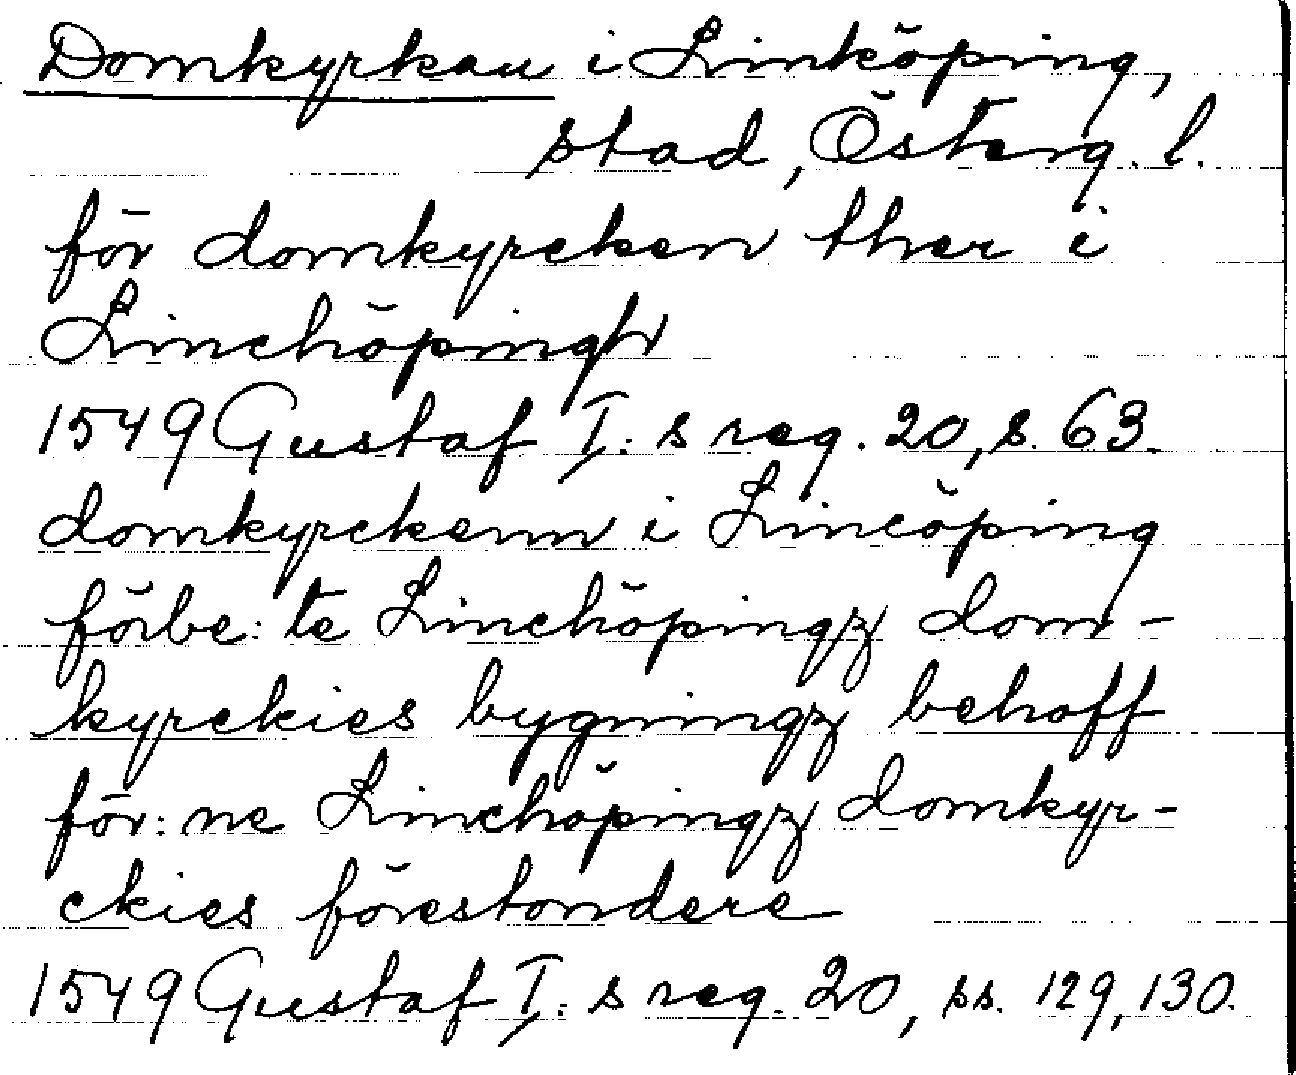 Domkyrkan i Linköping,
stad, Österg. l.
för domkyrcken ther i
Linchöpingh
1549 Gustaf I:s reg. 20, s. 63.
domkyrckenn i Lincöping
förbe:te Linchöpingz dom-
kyrckies bygningz behoff
för:ne Linchöpingz domkyr-
ckies förestondere
1549 Gustaf I:s reg. 20, ss. 129, 130.